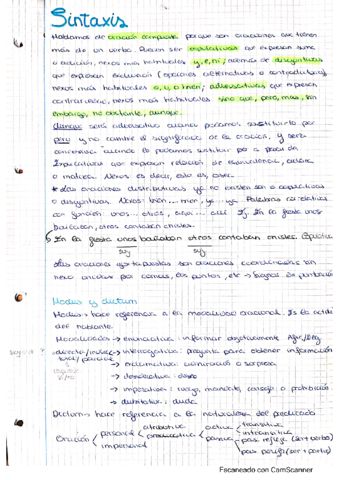 Sintaxis
Hablamos de oración compuesta porque son oraciones que tienen
más de un verbo. Pueden ser copulativas que expresan suma
o adición, nexos más habituales y, e, ni; además de disyuntivas
que expresan exclusión (opciones alternativas o contradictorias)
nexos más habituales o, u, o bien; adversativas que expresan
contrariedad, nexos más habituales sino que, pero, mas, sin
embargo, no obstante, aunque.
Aunque será adversativa cuando podamos sustituirlo por
pero y no cambie el significado de la oración, y será
concesiva cuando lo podamos sustituir por a pesar de
Explicativas que expresan relación de equivalencia,
o matices. Nexos es decir, esto es,
* Las oraciones distributivas ya no existen son o copulativas
o disyuntivas. Nexos: bien... bien, ya... ya. Palabras correlativas
con función unos... otros, aquí... allí. Ej. En la fiesta unos
bailaban, otros contaban chistes.
En la fiesta unos bailaban otros contaban chistes. Copulativa
suj suj
Las oraciones yuxtapuestas son oraciones coordinadas sin
nexo unidas por comas, los puntos, etc → signos de puntuación
Modus y dictum
Modus: hace referencia a la modalidad oracional. Es la actitud
del hablante.
Modalidades → enunciativa: informar objetivamente Afir/Neg
directa/indirecta → interrogativa: pregunta para obtener información
total/parcial → exclamativa: admiración o sorpresa
→ desiderativa: deseo
→ imperativa: ruego, mandato, consejo o prohibición
→ dubitativa: duda
Dictum: hace referencia a la naturaleza del predicado
Oración personal atributiva activa transitiva
impersonal predicativa pasiva intransitiva
pas. refleja (se + verbo)
pas. perifr (ser + partic)
Escaneado con CamScanner